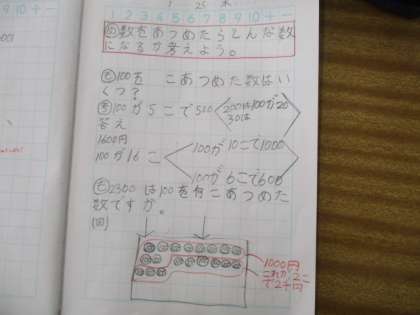 25 木
1 2 3 4 5 6 7 8 9 10 + −
数をあつめたらどんな数
になるか考えよう。
100を こあつめた数はい
くつ?
100が5こで500
200は100が20
30は
答え
1600円
100が16こ
100が10こで1000
100が6こで600
2300は100を何こあつめた
数ですか。
[図]
1000円
これが2こ
で2千円
9 10 + −